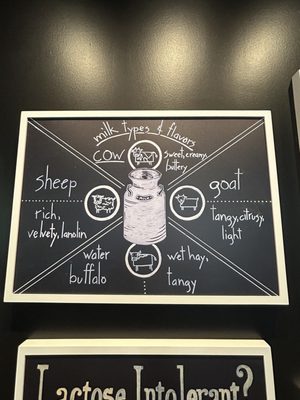 milk types & flavors
cow
sweet, creamy,
buttery
sheep
goat
rich,
velvety, lanolin
tangy, citrusy,
light
water
buffalo
wet hay,
tangy
Lactose Intolerant?